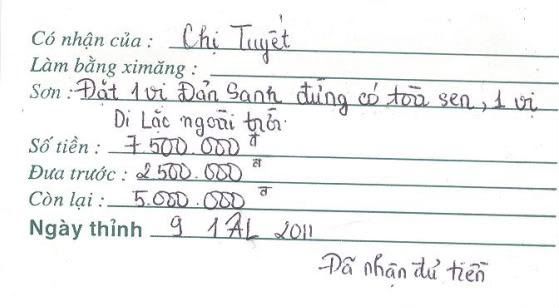 Có nhận của : Chị Tuyết
Làm bằng ximăng :
Sơn : Đặt 1 vi Đản Sanh đứng có tòa sen, 1 vị
Di Lặc ngoài trời.
Số tiền : 7.500.000 đ
Đưa trước : 2.500.000 đ
Còn lại : 5.000.000 đ
Ngày thỉnh 9 1 AL 2011
Đã nhận đủ tiền